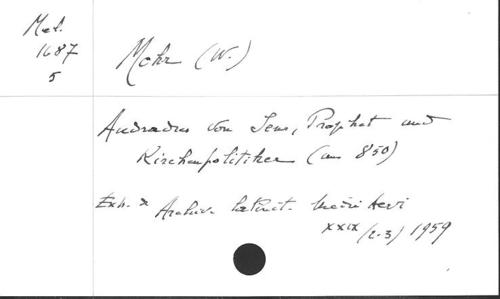 Mel.
1687
5
Mohr (W.)
Audradus von Sens, Prophet und
Kirchenpolitiker (um 850)
Extr. de Archiv. Latinit. Medii Aevi
XXIX/(2-3) 1959